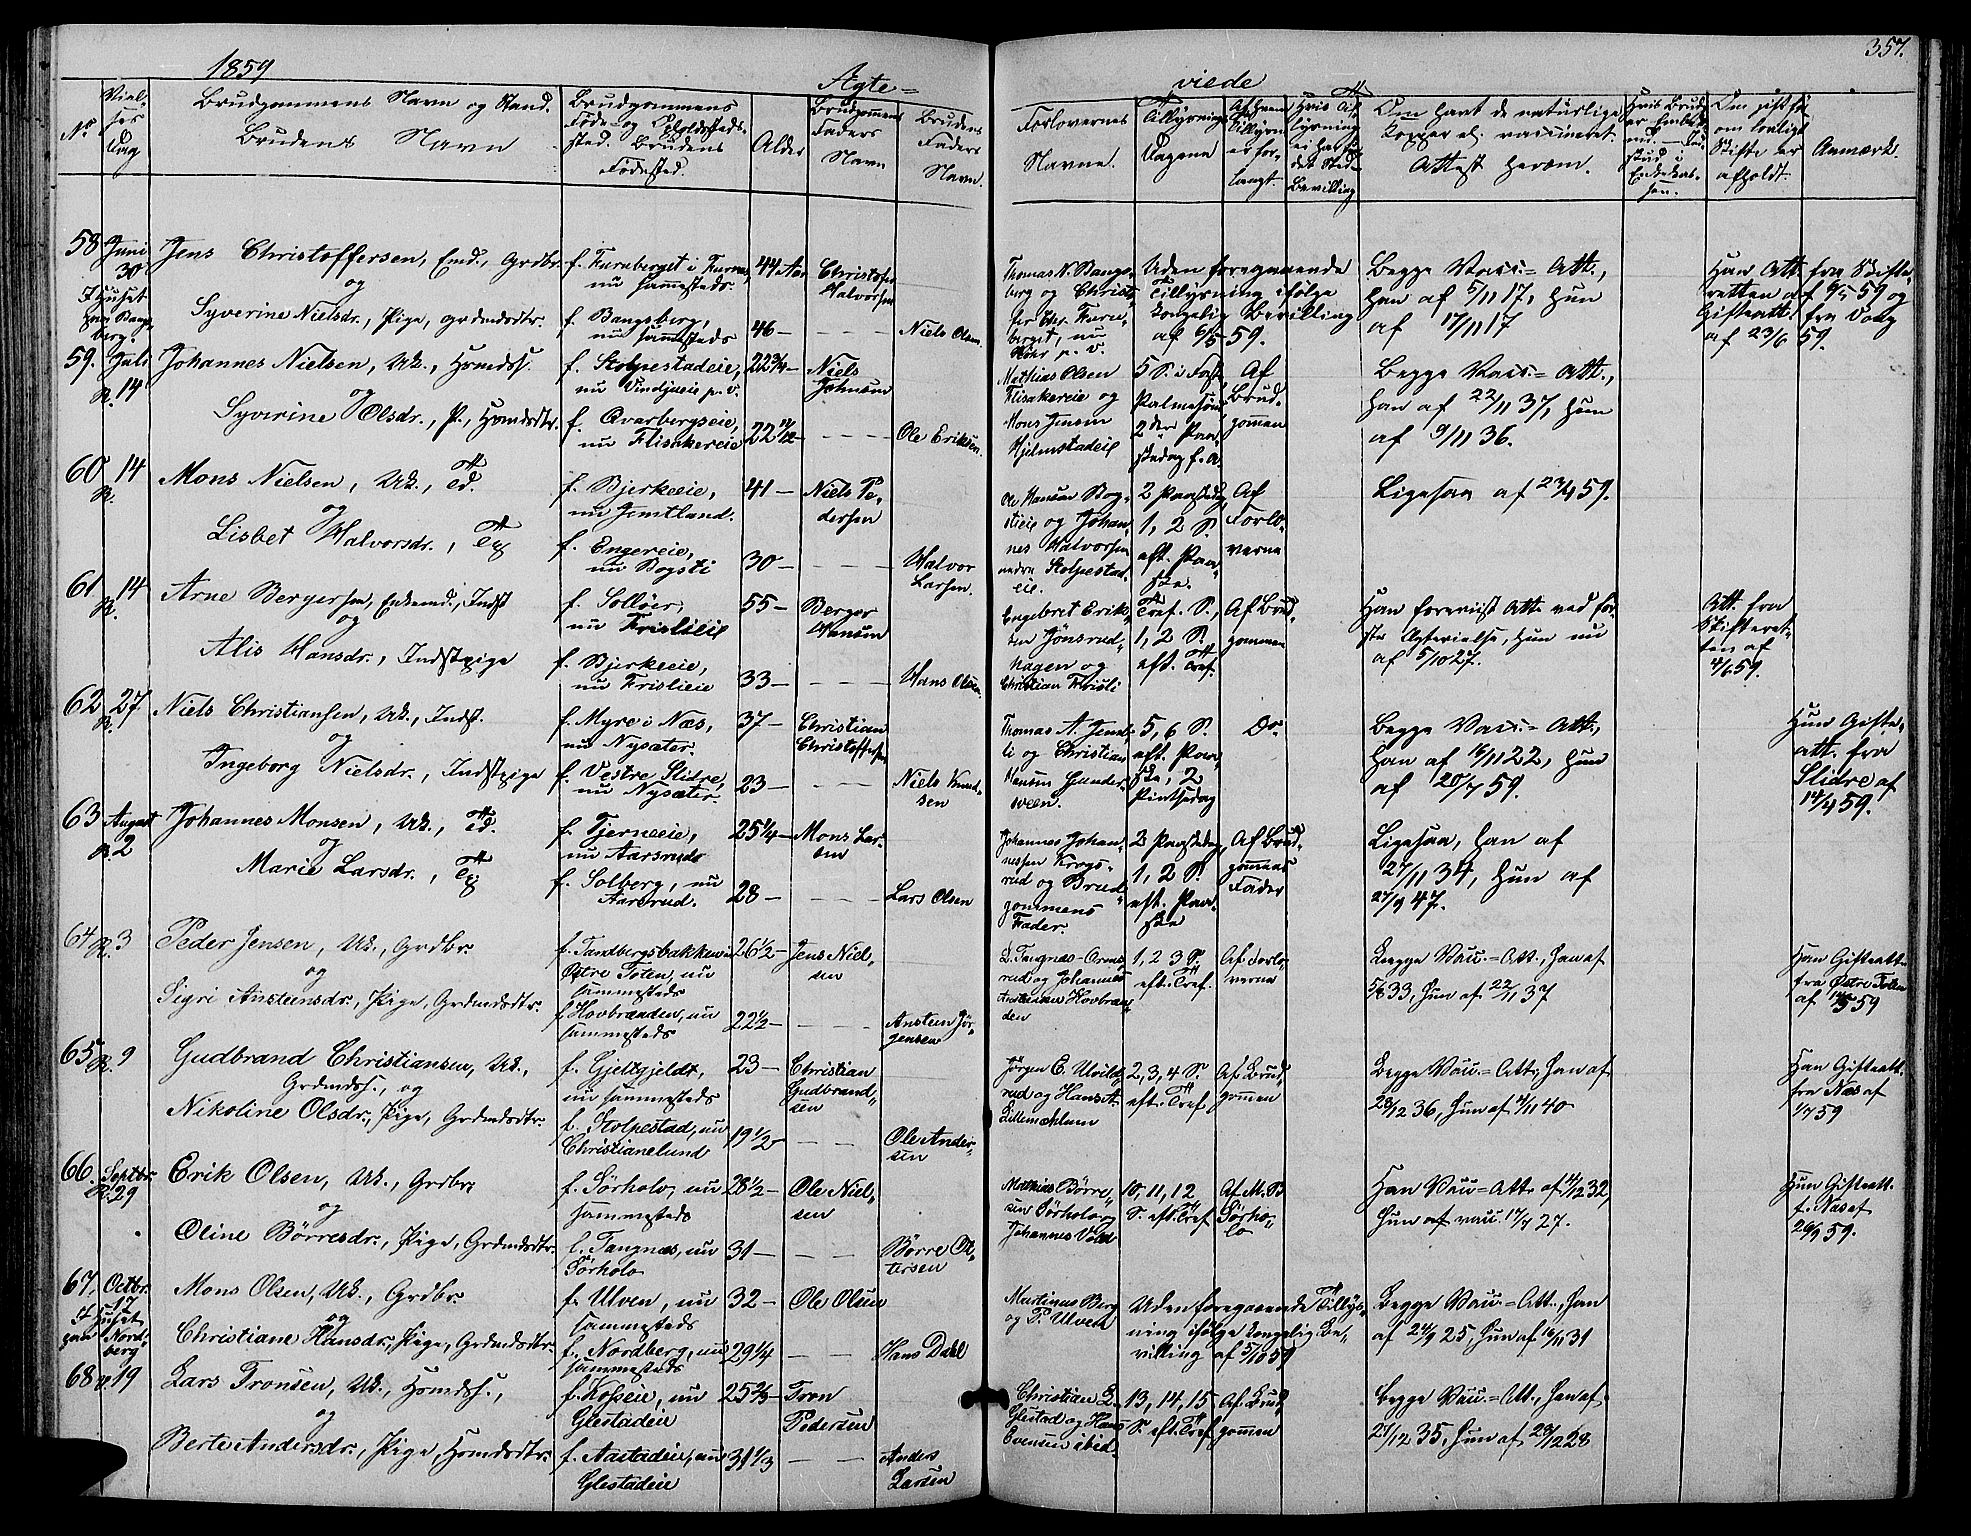 1859
Ægte=
viede
357.
No
Viel-
ses
Dag
Brudgommens Navn og Stand.
Brudens Navn
Brudgommens
Føde- og Opholdssted.
Brudens
Fødested.
Alder
Brudgommens
Faders
Navn
Brudens
Faders
Navn.
Forlovernes
Navne.
Tillysnings
Dagene
Af hvem
Tillysn.
er for-
langt.
Hvis Til-
lysning
ei har fun-
det Sted
Bevilling
Om havt de naturlige
Kopper el. vaccineret.
Attest herom.
Om gift før
om lovligt
Skifte er
afholdt.
Anmærk.
58 Juni
30
I Huset
paa Bangs-
berg.
Jens Christoffersen, Emd., Grdbr.
og
Syverine Nielsdr., Pige, grdmdsdtr.
f. Furuberget i Furnes,
nu sammesteds.
f. Bangsberg,
nu sammesteds
44 Aar
46 —
Christofer
Halvorsen
Niels Olsen.
Thomas N. Bangs-
berg og Christo-
fer Chr. Furu-
berget, nu
Uden foregaaende
Tillysning ifølge
Kongelig Bevilling
af 6/5 59.
Begge Vacc.= Att.,
han af 5/11 17, hun
af 17/11 17
Han Att. fra Skifte-
retten af 9/5 59 og
Gifteatt. fra Vang
af 23/6 59.
59. Juli
R. 14
Johannes Nielsen, Uk., Hsmdss.
og
Syverine Olsdr., P., Hsmdsdtr.
f. Stolpestadeie,
nu Vindjueie p. v.
f. Qvarbergseie,
nu Flisakereie
22 3/4 —
22 11/12 —
Niels
Johnsen
Ole Eriksen.
Mathias Olsen
Flisakereie og
Mons Jensen
Hjelmstadeie
5 S. i Faste,
Palmesønd.
2den Paa-
skedag f. A.
Af
Brud-
gommen
Begge Vacc.= Att.,
han af 22/11 37, hun
af 9/11 36.
60 14
R.
Mons Nielsen, Uk., Td.
og
Lisbet Halvorsdr., Tg
f. Bjerkeeie,
nu Jemtland.
f. Engereie,
nu Bogsti
41 —
30 —
Niels Pe-
dersen
Halvor
Larsen.
Ole Hansen Bog-
stieie og Johan-
nes Halvorsen
nedre Stolpestad-
eie.
2 Paaskedag,
1, 2 S.
eft. Paa-
ske.
Af
Forlo-
verne
Ligesaa af 23/4 59.
61 14
R.
Arne Bergersen, Enkemd., Indst
og
Alis Hansdr., Indstpige
f. Solløer,
nu Frislieie
f. Bjerkeeie,
nu Frislieie
55 —
33 —
Berger
Hansen
Hans Olsen
Engebret Erik-
sen Jønsrud-
hagen og
Christian Frisli
Tref. S.,
1, 2 S.
eft. Tref.
Af Brud-
gommen
Han foreviist Att. ved før-
ste Ægtevielse, hun nu
af 5/10 27.
Att. fra
Skifteret-
ten af
4/6 59.
62 27
R.
Niels Christiansen, Uk., Indst.
og
Ingeborg Nielsdr., Indstpige
f. Myre i Næs,
nu Nysæter.
f. Vestre Slidre,
nu Nysæter.
37 —
23 —
Christian
Christoffersen
Niels Knud-
sen
Thomas A. Jems-
li og Christian
Hansen Gunder-
sveen.
5, 6 S.
eft. Paa-
ske, 2
Pintsedag
Do
Begge Vacc.= Att.,
han af 16/11 22, hun
af 20/7 59.
Hun Gifte-
att. fra
Slidre af
14/4 59.
63 August
R. 2
Johannes Monsen, Uk., Td.
og
Marie Larsdr., Tg
f. Tjerneeie,
nu Aarsrud
f. Solberg, nu
Aarsrud.
25 1/4 —
28 —
Mons Lar-
sen
Lars Olsen
Johannes Johan-
nessen Krogs-
rud og Brud-
gommens
Fader.
2 Paaskedag,
1, 2 S.
eft. Paa-
ske
Af Brud-
gommens
Fader
Ligesaa, han af
27/11 34, hun af
27/9 47.
64 R. 3
Peder Jensen, Uk., Grdbr.
og
Sigri Ansteensdr., Pige, Grdmdsdtr.
f. Tandbergsbakken i
Østre Toten, nu
sammesteds
f. Hovbraaden, nu
sammesteds
26 1/2 —
22 1/2 —
Jens Niel-
sen
Ansteen Jør-
gensen
L. Tangnæs-Orms-
rud og Johannes
Ansteensen Hovbraa-
den
1, 2 3 S.
eft. Tref.
Af Forlo-
verne
Begge Vacc.= Att., han af
5/8 33, hun af 22/11 37
Han Gifteatt.
fra Østre Toten
af 14/5 59
65 R. 9
Gudbrand Christiansen, Uk.,
Grdmdss., og
Nikoline Olsdr., Pige, Grdmdsdtr.
f. Gjeltgjeldt,
nu sammesteds
f. Stolpestad, nu
Christianelund
23 —
19 1/2 —
Christian
Gudbrand-
sen
Ole Ander-
sen
Jørgen E. Ulvild-
rud og Hans A.
Lillemælum
2, 3, 4 S.
eft. Tref
Af Brud-
gommen
Begge Vacc.= Att., han af
28/12 36, hun af 4/11 40
Han Gifteatt.
fra Næs af
1/7 59
66. Septbr.
R. 29
Erik Olsen, Uk., Grdbr.
og
Oline Børresdr., Pige, Grdmdsdtr.
f. Sørholo, nu
sammesteds
f. Tangnæs, nu
Sørholo
28 1/2 —
31 —
Ole Niel-
sen
Børre Ot-
tersen
Mathias Børre-
sen Sørholo og
Johannes Vold
10, 11, 12
S. eft. Tref
Af M. B
Sørho-
lo
Han Vacc=Att. af 14/12 32,
hun af vacc. 17/7 27.
Hun Gifteatt.
f. Næs af
26/9 59.
67, Octbr.
17
I Huset
paa Nord-
berg
Mons Olsen, Uk., Grdbr.
og
Christiane Hansdr., Pige, Grdmdsdtr.
f. Ulven, nu
sammesteds
f. Nordberg, nu
sammesteds
32 —
29 1/4 —
Ole Olsen
Hans Dahl
Martinus Berg
og P. Ulven
Uden foregaaende Tillys-
ning ifølge Kongelig Be-
villing af 5/10 59
Begge Vacc=Att., han
af 24/9 25, hun af 16/11 31
68 R. 19
Lars Tronsen, Uk., Hsmdss.,
og
Berte Andersdr., Pige, Hsmdsdtr.
f. Kosseie, nu
Glestadeie
f. Aastadeie, nu
Glestadeie
25 2/3 —
31 1/3 —
Tron
Pedersen
Anders
Larsen
Christian L.
Glestad og Hans
Evensen ibid.
13, 14, 15
S. eft. Tref
Af Brud-
gommen
Begge Vacc=Att., han af
21/12 35, hun af 28/12 28